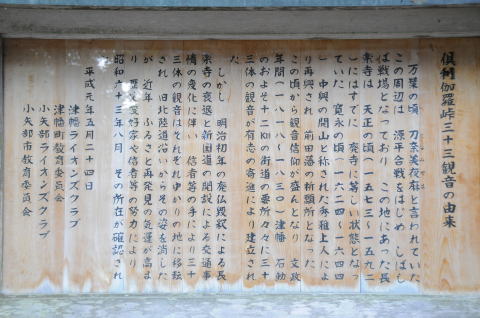 倶利伽羅峠三十三観音の由来
万葉の頃 刀奈美夜麻と言われていた
この周辺は 源平合戦をはじめ しばしば
戦場となっており この地にあった長
楽寺は 天正の頃(一五七三〜一五九二
)にはすでに 廃寺に等しい状態となっ
ていた 寛永の頃(一六二四〜一六四四
) 中興の開山と称された秀雅上人によ
り再興され前田藩の祈願所となった
この頃から観音信仰が盛んとなり 文政
年間(一八一八〜八三〇) 津幡 石動
のおよそ十二kmの街道の要所々々に三十
三体の観音が有志の寄進により建立され
た
しかし 明治初年の廃仏毀釈による長
楽寺の衰退と新国道の開設による交通事
情の変化に伴い 信者等の手により三十
三体の観音はそれぞれゆかりの地に移転
され 旧北陸道沿いからその姿を消した
が 近年 ふるさと再発見の気運が高ま
り 歴史愛好家や信者等の努力により
昭和六十三年八月 その所在が確認され
平成元年五月二十四日
津幡ライオンズクラブ
津幡町教育委員会
小矢部ライオンズクラブ
小矢部市教育委員会